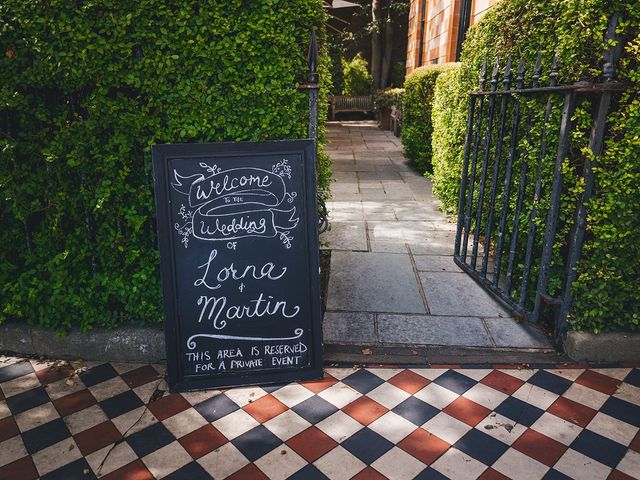 Welcome
TO THE
Wedding
OF
Lorna
&
Martin
THIS AREA IS RESERVED
FOR A PRIVATE EVENT